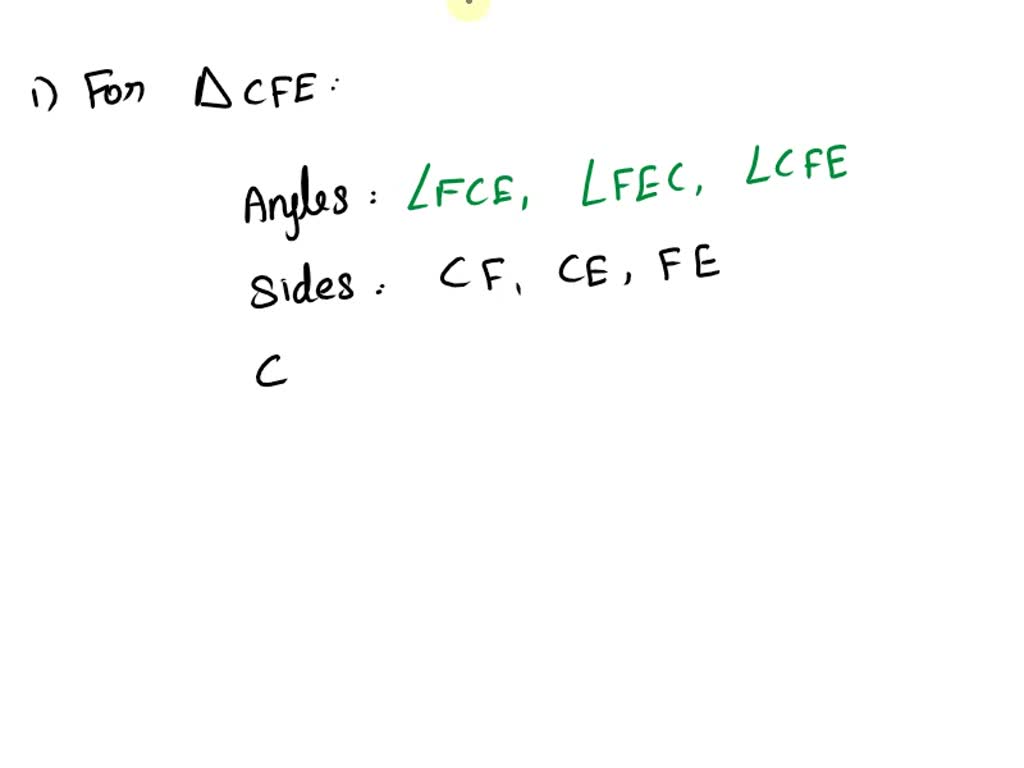 1) For △CFE :
Angles : ∠FCE, ∠FEC, ∠CFE
Sides : CF, CE, FE
C